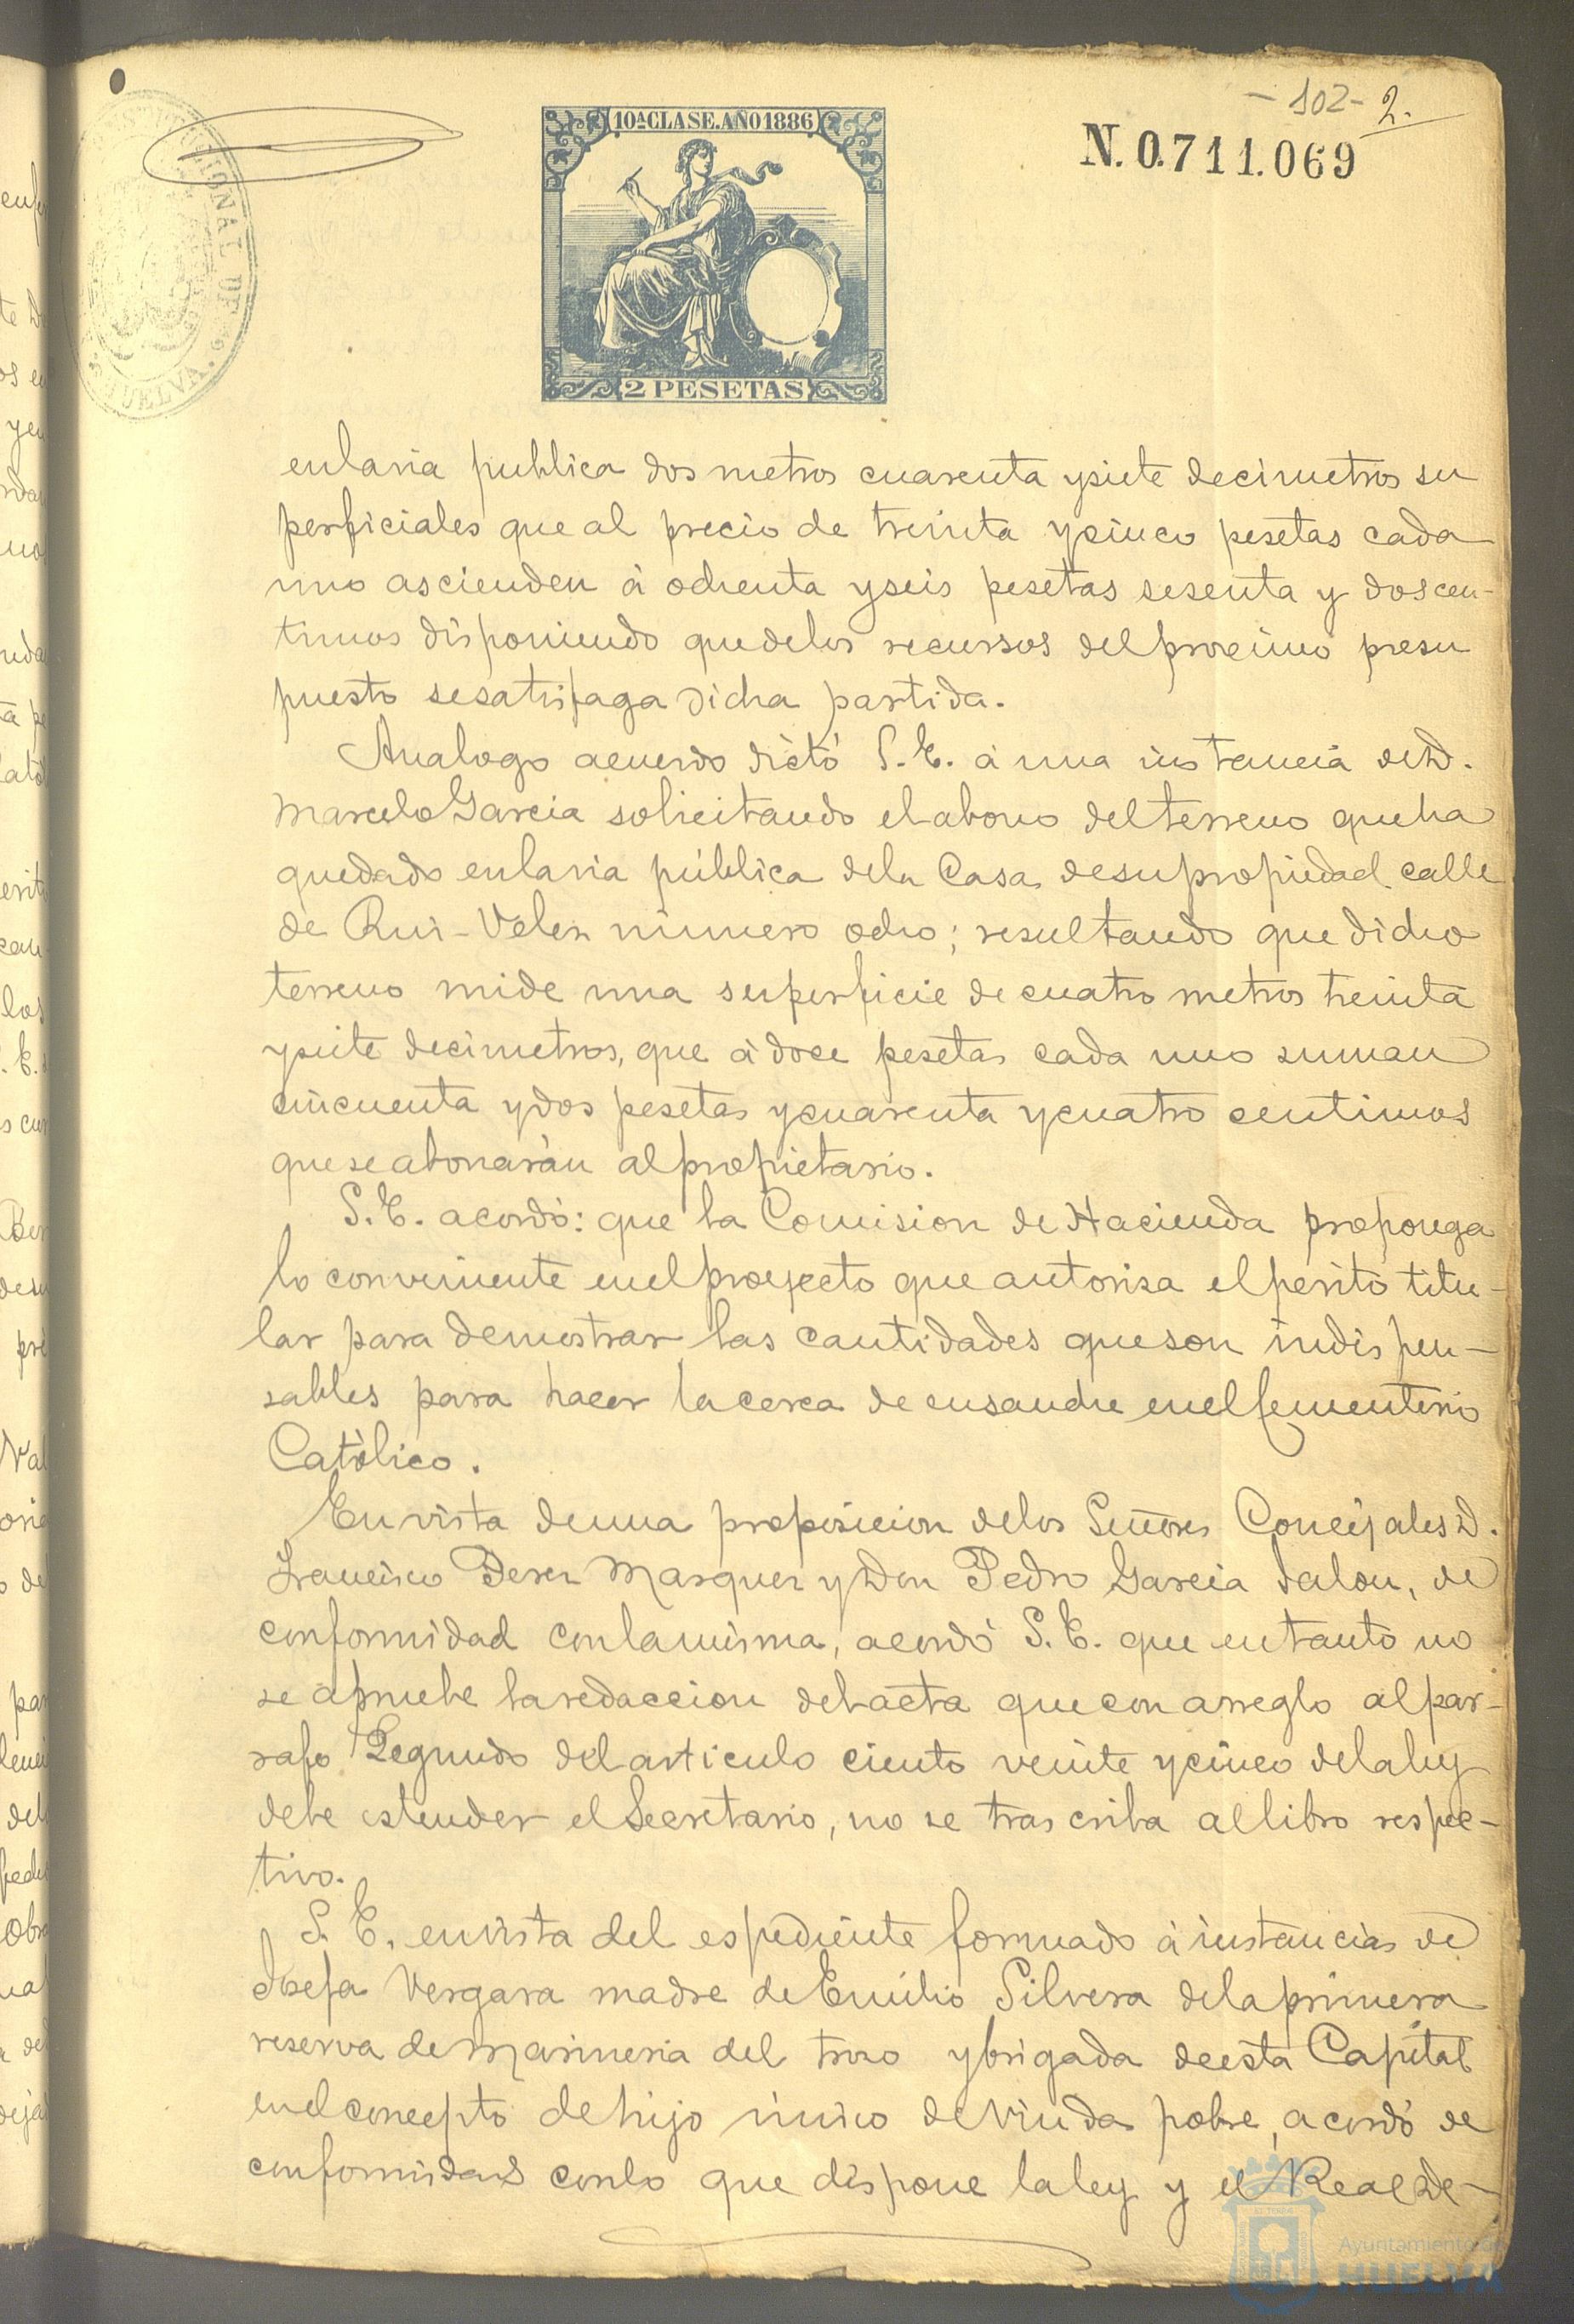 - 102 - 2.
10ª CLASE. AÑO 1886
N. 0.711.069
2 PESETAS
HUELVA
en la via publica dos metros cuarenta y siete decimetros su
perficiales que al precio de treinta y cinco pesetas cada
uno ascienden á ochenta y seis pesetas sesenta y dos cen-
timos disponiendo que de los recursos del procimo presu
puesto se satisfaga dicha partida.
Analogo acuerdo dictó S. E. á una instancia de D.
Marcelo Garcia solicitando el abono del terreno que ha
quedado en la via pública de la Casa de su propiedad calle
de Rui-Velez número ocho; resultando que dicho
terreno mide una superficie de cuatro metros treinta
y siete decimetros, que á doce pesetas cada uno suman
cincuenta y dos pesetas y cuarenta y cuatro centimos
que se abonarán al propietario.
S. E. acordó: que la Comision de Hacienda proponga
lo conveniente en el proyecto que autoriza el perito titu-
lar para demostrar las cantidades que son indispen-
sables para hacer la cerca de ensanche en el Cementerio
Católico.
En vista de una proposicion de los Señores Concejales D.
Francisco Perez Marquez y Don Pedro Garcia Jalon, de
conformidad con la misma, acordó S. E. que en tanto no
se apruebe la redaccion del acta que con arreglo al par-
rafo Segundo del articulo ciento veinte y cinco de la ley
debe estender el Secretario, no se trascriba al libro respec-
tivo.
S. E. en vista del espediente formado á instancias de
Josefa Vergara madre de Emilio Silvera de la primera
reserva de Marineria del trozo y brigada de esta Capital
en el concepto de hijo único de viuda pobre, acordó de
conformidad con lo que dispone la ley y el Real de-
Ayuntamiento de
HUELVA